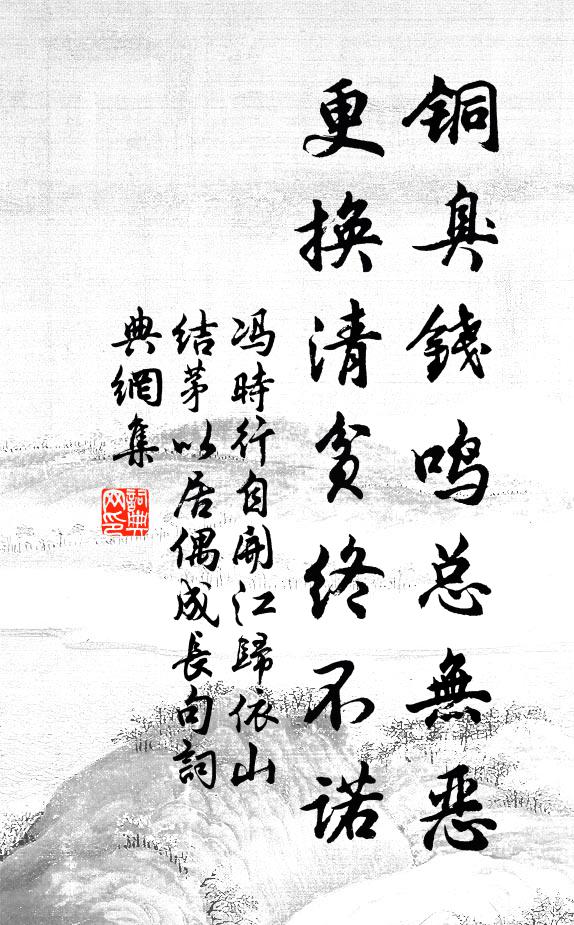 铜臭錢鳴总無恶
更换清貧终不诺
冯時行自開江歸依山
结茅以居偶成長句詞
典網集
詞典
网印